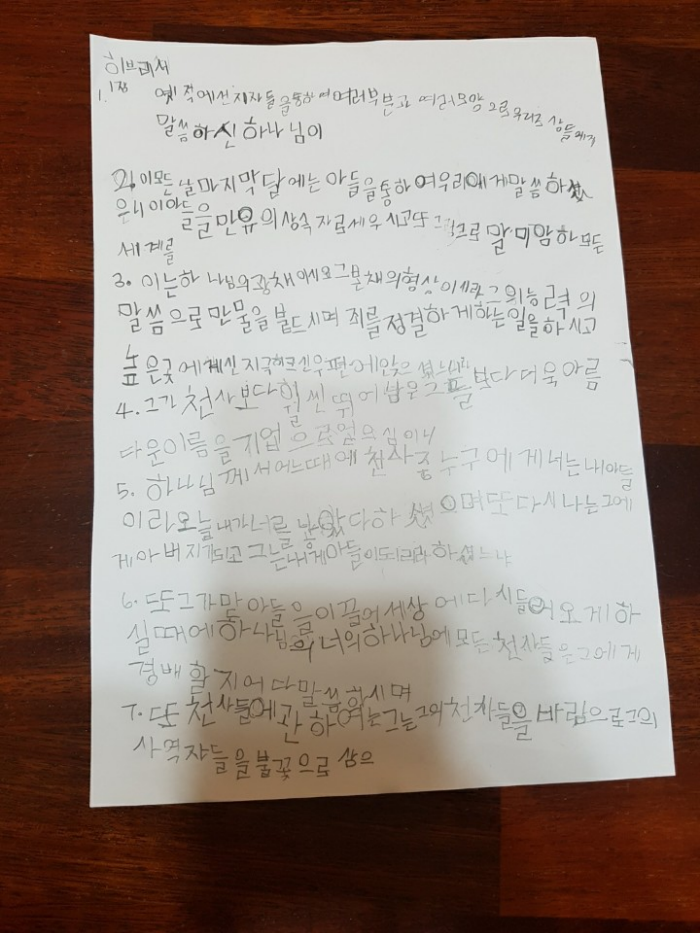 히브리서
1장
1. 옛적에 선지자들을 통하여 여러 부분과 여러 모양으로 우리 조상들에게
말씀하신 하나님이
2. 이 모든 날 마지막 달에는 아들을 통하여 우리에게 말씀하셨
은니 이 아들을 만유의 상속자로 세우시고 또 그로 말미암아 모든
세계를
3. 이는 하나님의 광채이시오 그 본채의 형상이시라 그의 능력의
말씀으로 만물을 붙드시며 죄를 정결하게 하는 일을 하시고
높은 곳에 계신 지극히 크신 우편에 앉으셨느니라
4. 그가 천사보다 훨씬 뛰어남은 그들보다 더욱 아름
다운 이름을 기업으로 얻으심이니
5. 하나님께서 어느 때에 천사 중 누구에게 너는 내 아들
이라 오늘 내가 너를 낳았다 하셨으며 또 다시 나는 그에
게 아버지가 되고 그는 내게 아들이 되리라 하셨느냐
6. 또 그가 맏아들을 이끌어 세상에 다시 들어오게 하
실 때에 하나님의 너의 하나님에 모든 천사들은 그에게
경배할지어다 말씀합시며
7. 또 천사들에 관하여는 그는 그의 천사들을 바람으로 그의
사역자들을 불꽃으로 삼으